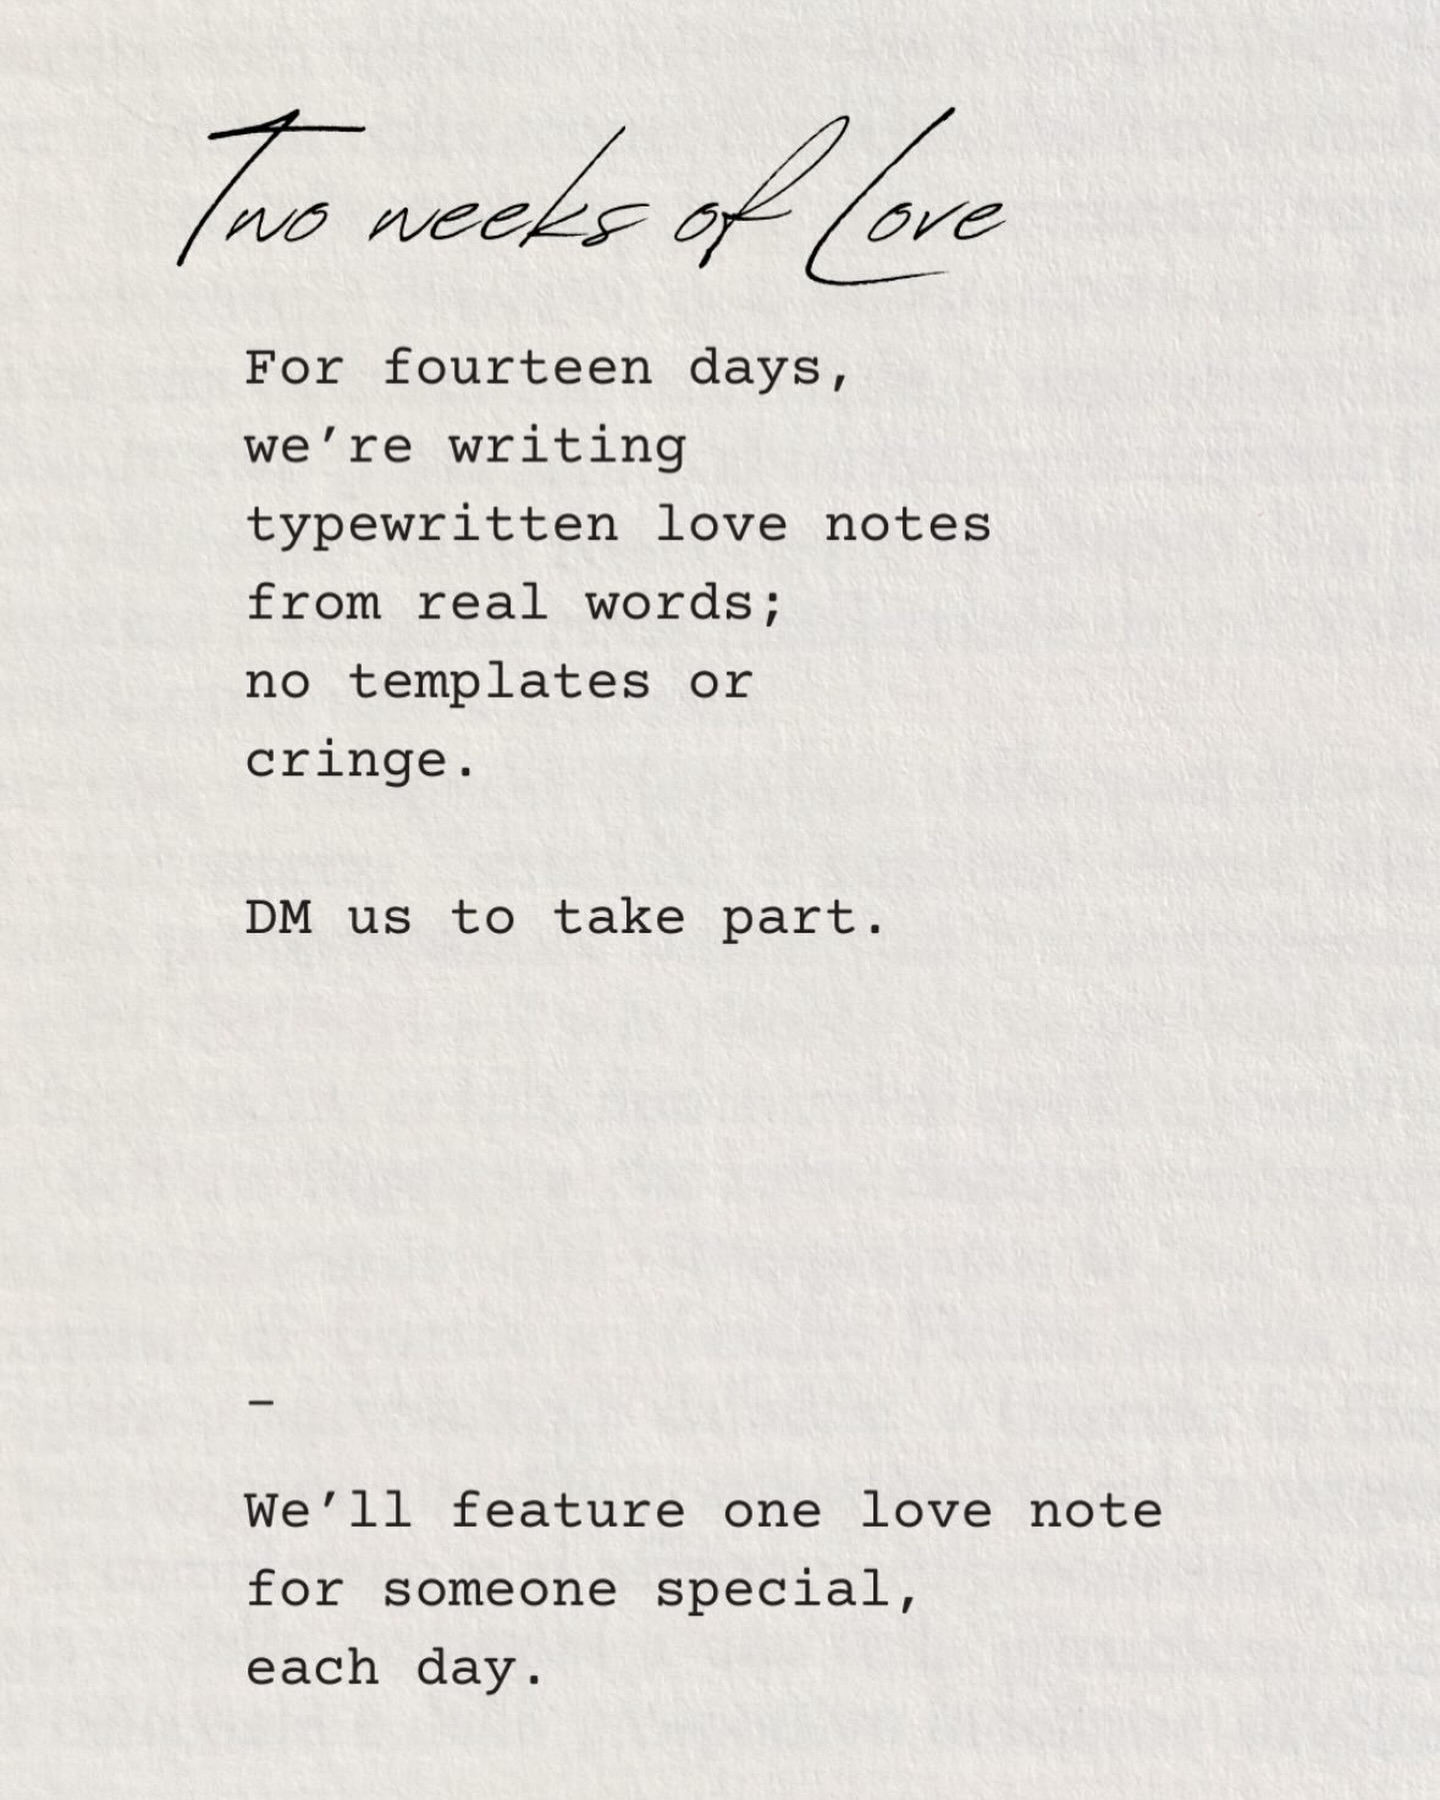 Two weeks of Love
For fourteen days,
we’re writing
typewritten love notes
from real words;
no templates or
cringe.
DM us to take part.
–
We’ll feature one love note
for someone special,
each day.